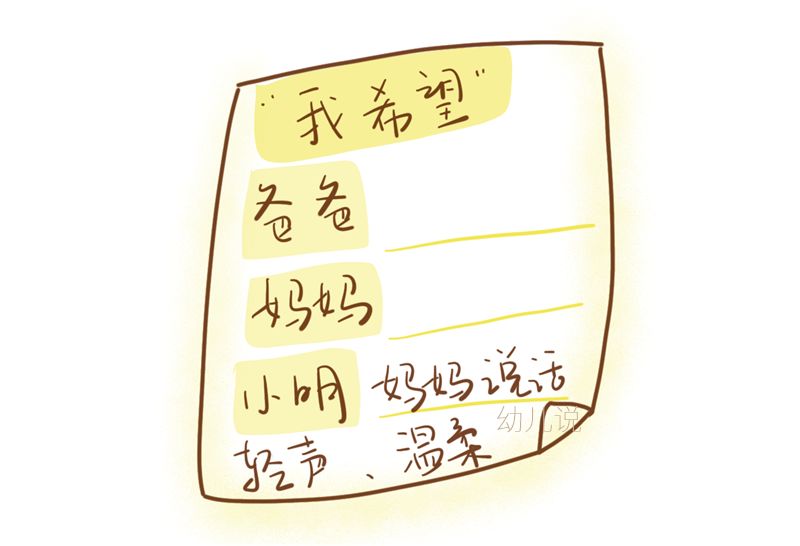 “我希望”
爸爸
妈妈
小明 妈妈说话
轻声、温柔
幼儿说